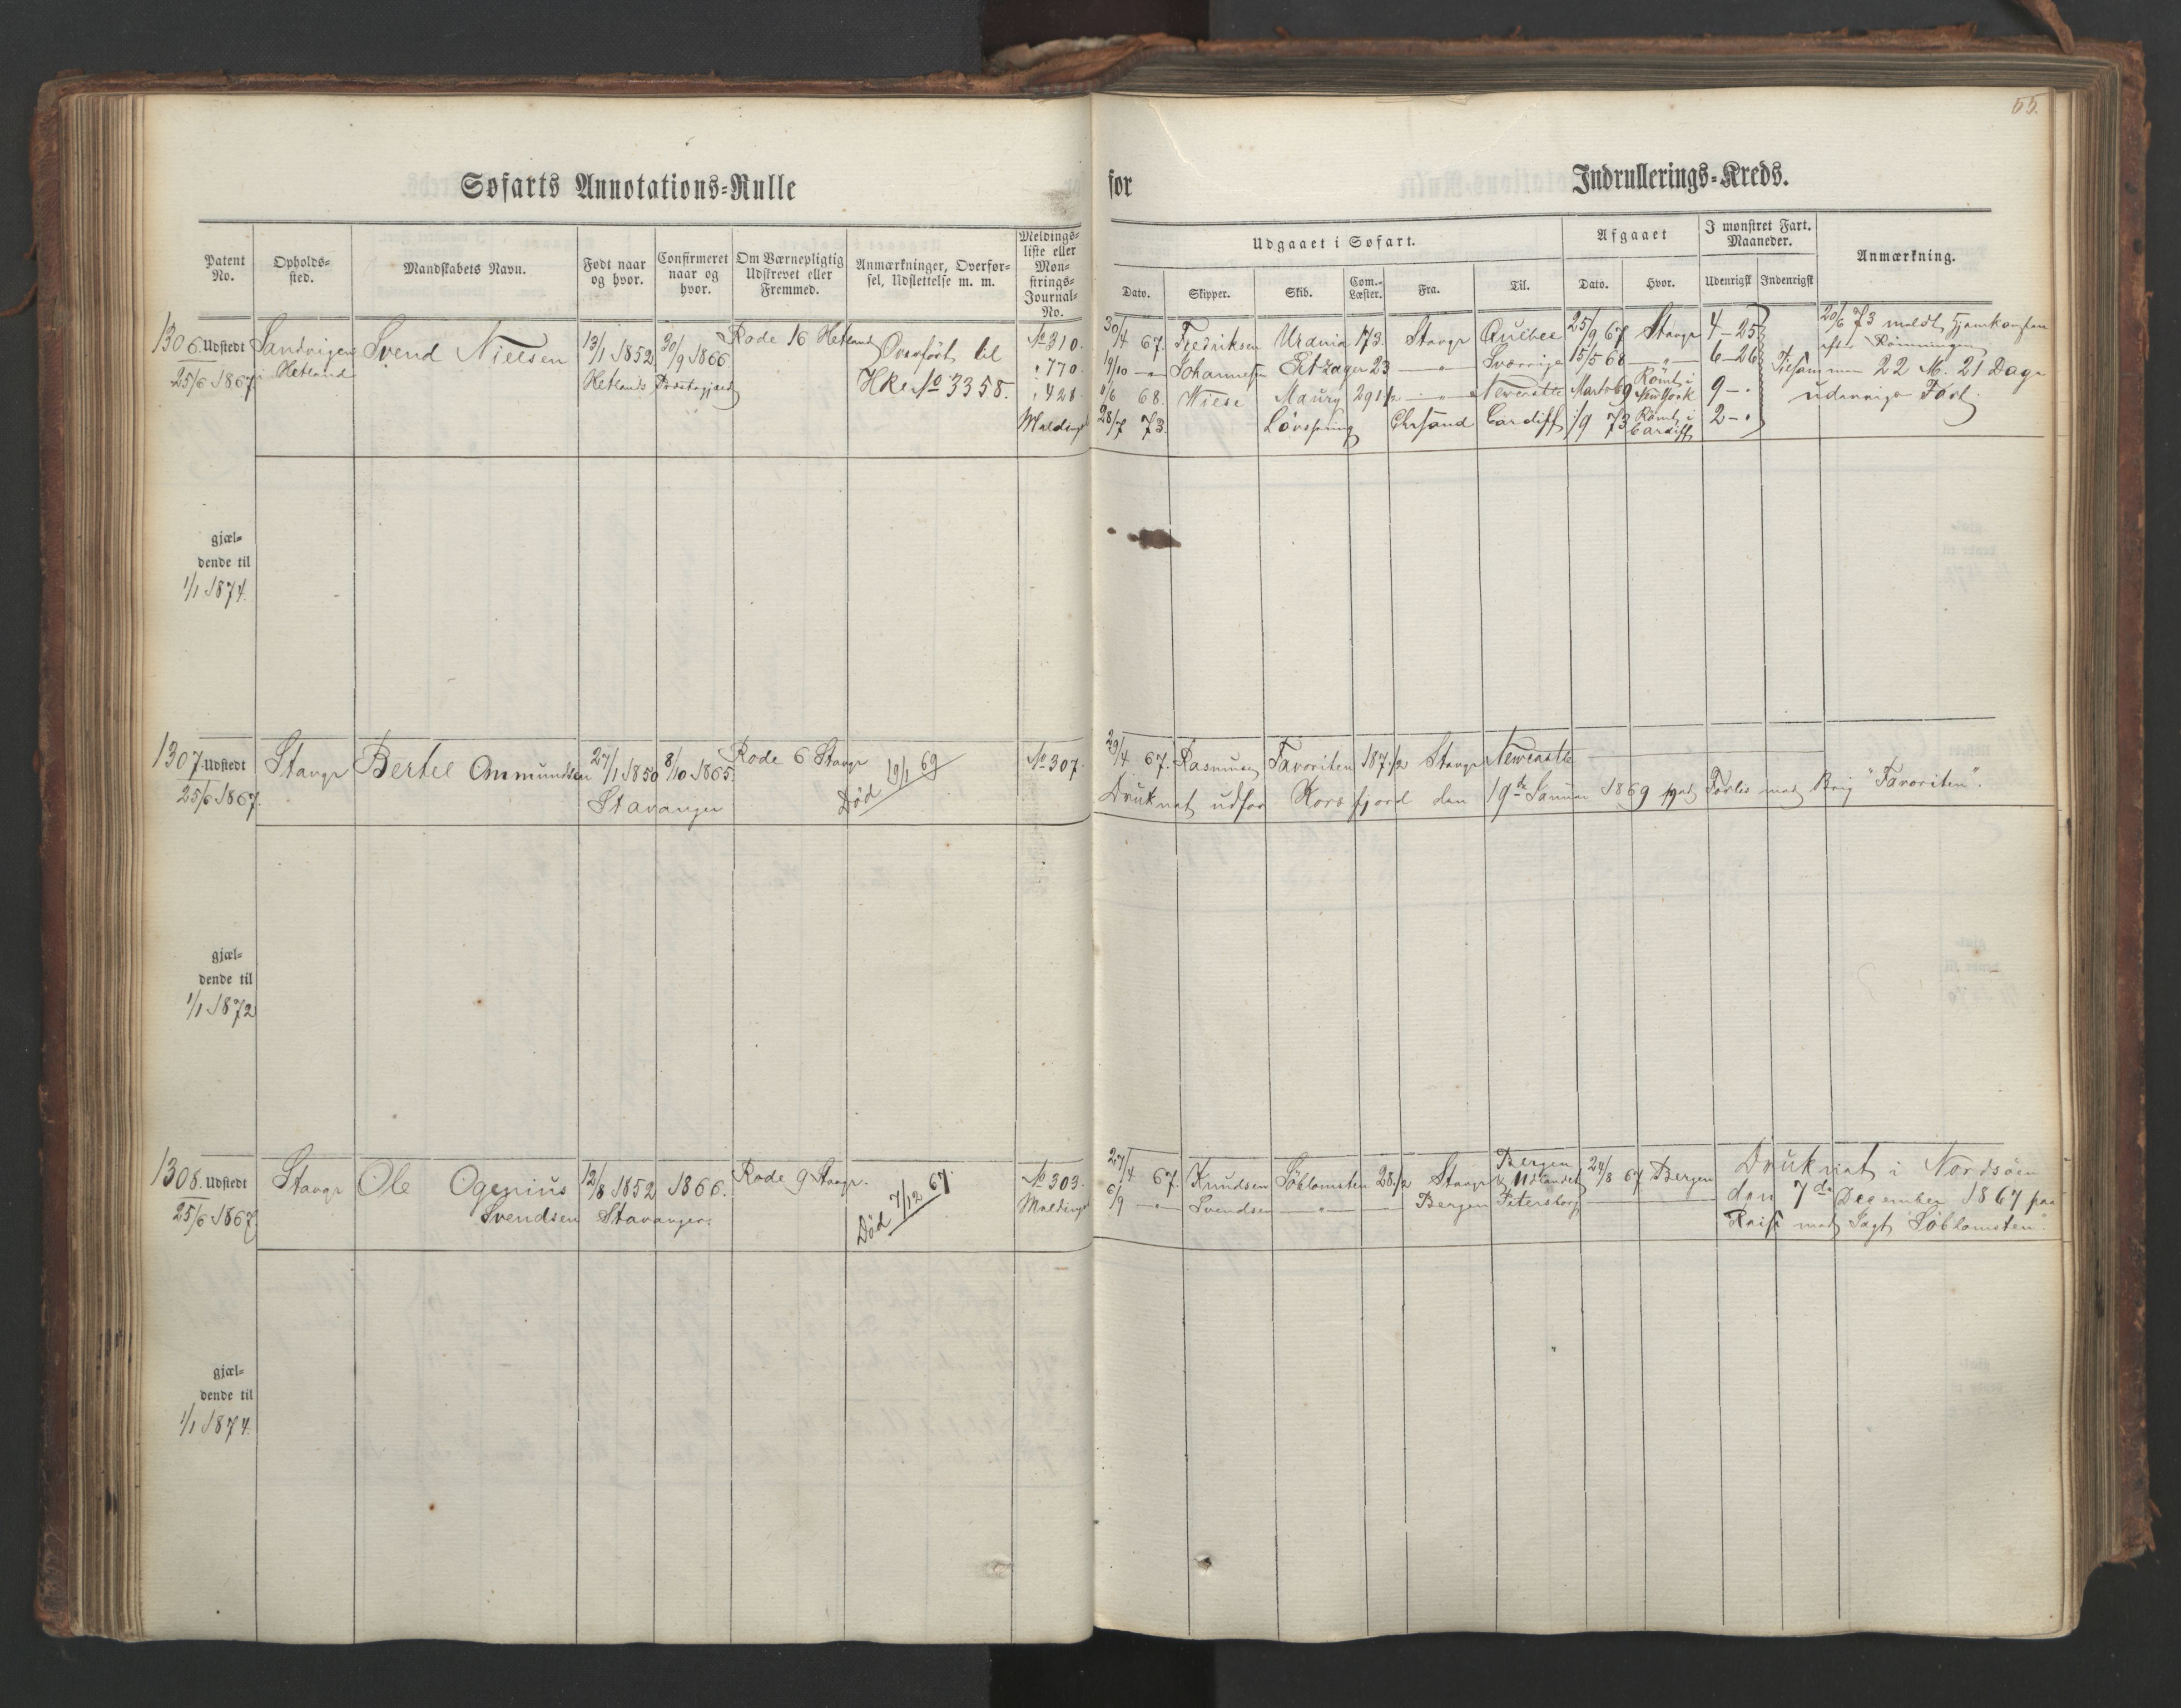 55.
Søfarts Annotations-Rulle for Indrullerings-Kreds.
Patent No.
Opholds-sted.
Mandskabets Navn.
Født naar og hvor.
Confirmeret naar og hvor.
Om Værnepligtig Udskrevet eller Fremmed.
Anmærkninger, Overførsel, Udslettelse m. m.
Meldings-liste eller Mønstrings-Journal-No.
Udgaaet i Søfart.
Dato.
Skipper.
Skib.
Com.-Læster.
Fra.
Til.
Afgaaet
Dato.
Hvor.
I mønstret Fart. Maaneder.
Udenrigsk
Indenrigsk
Anmærkning.
1306. Udstedt Sandvigen Svend Nielsen 13/1 1852 30/9 1866 Rode 16 Hetland Overført til No 310.
25/6 1867 i Hetland Hetlands Præstegjæld HRe No 3358. " 770.
" 428.
Melding
30/4 67. Fredriksen Urania 173. Stavgr Quebec 25/9 67 Stavgr 4-25 20/6 73 meldt Hjemkomsten
efter Rømningen
19/10 -"- Johannesen 23 -"- Sverrige 15/5 68 -"- 6-26 Tilsammen 22 M. 21 Dage
1/6 68. Wiese Maury 291 1/2 -"- Newcastle Marts 69 Rømt i New York 9-" udenrigs Fart.
28/7 73. Løvspring Chrsand Cardiff 1/9 73 Rømt i Cardiff 2-"
gjæl-
dende til
1/1 1874.
1307. Udstedt Stavgr Bertel Ommundsen 27/1 1850 8/10 1865. Rode 6 Stavgr Død 19/1 69 No 307.
25/6 1867. Stavanger
29/4 67. Rasmusen Favoriten 187 1/2 Stavgr Newcastle
Druknet udfor Korsfjord den 19de Januar 1869 ved Forlis med Brig "Favoriten".
gjæl-
dende til
1/1 1872
1308. Udstedt Stavgr Ole Ogenius 12/8 1852 1866. Rode 9 Stavgr. Død 7/12 67. No 303.
25/6 1867. Svendsen Stavanger. Melding
27/4 67. Knudsen Søblomsten 28 1/2 Stavgr Bergen & Udlandet 24/8 67 Bergen Druknet i Nordsøen
6/9 -"- Svendsen -"- Bergen Petersborg den 7de December 1867 paa
Reise med Jagt "Søblomsten".
gjæl-
dende til
1/1 1874.